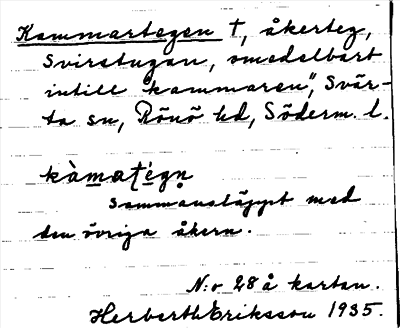 Kammartegen †, åkerteg,
Svirstugan, omedelbart
intill kammaren", Svär-
ta sn, Rönö hd, Söderm. l.
kàmatégn
Sammansläppt med
den övriga åkern.
N:o 28 å kartan.
Herbarth Eriksson 1935.